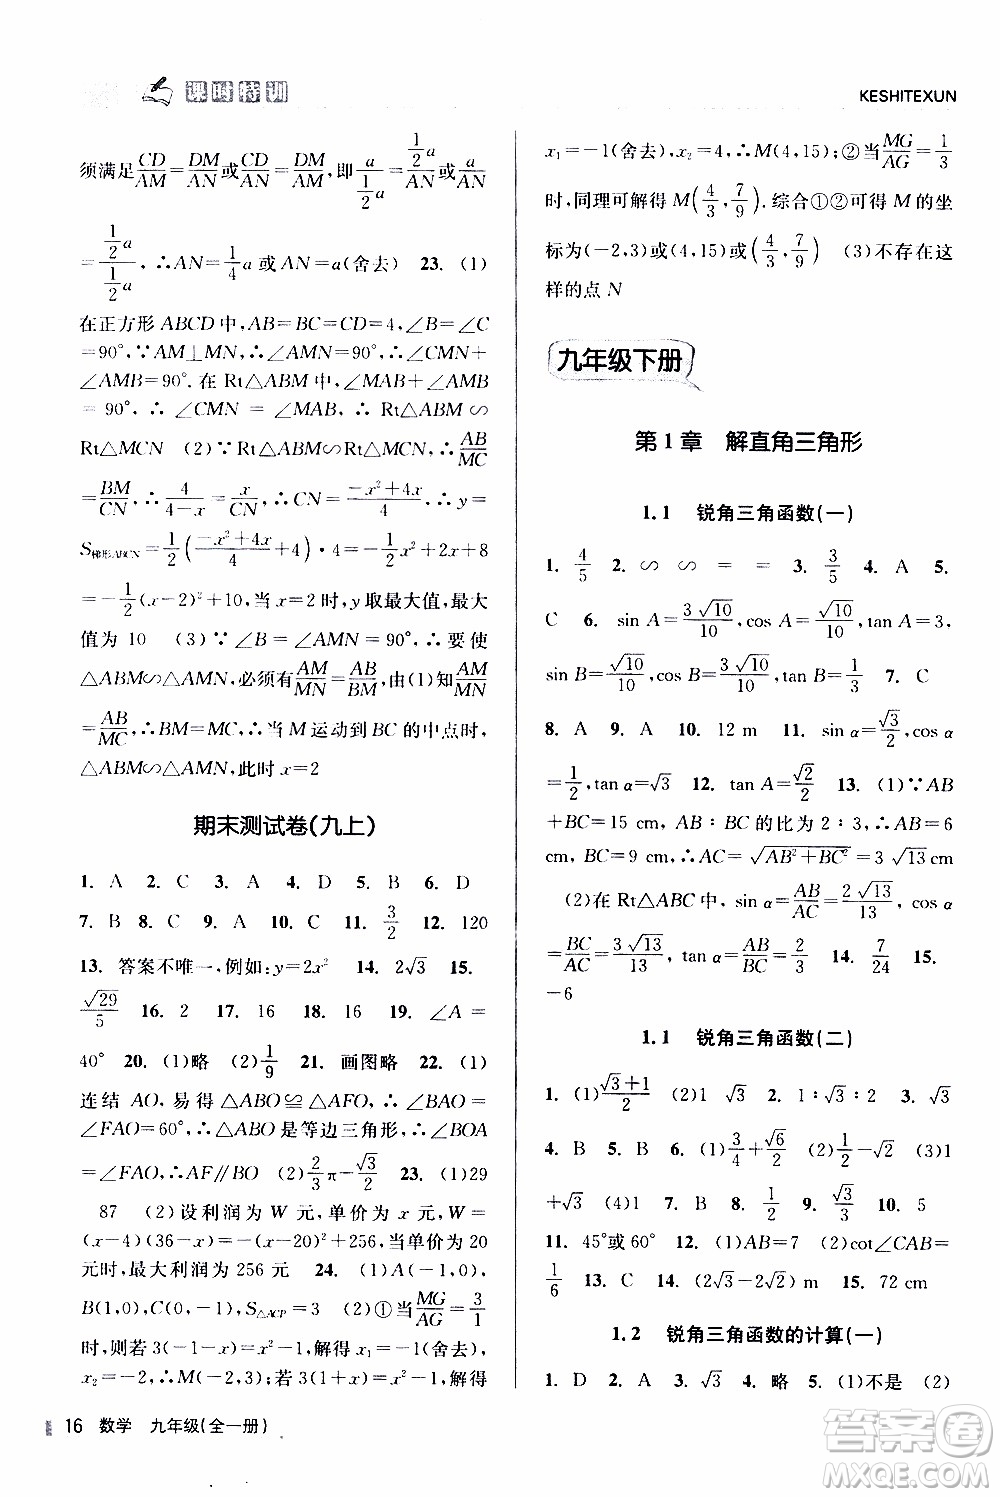 课时特训
KESHITEXUN
须满足CD/AM=DM/AN或CD/AN=DM/AM,即a/(1/2 a)=(1/2 a)/AN或a/AN
=(1/2 a)/(1/2 a),∴AN=1/4 a或AN=a(舍去) 23. (1)
在正方形ABCD中,AB=BC=CD=4,∠B=∠C
=90°,∵AM⊥MN,∴∠AMN=90°,∴∠CMN+
∠AMB=90°.在Rt△ABM中,∠MAB+∠AMB=
90°,∴∠CMN=∠MAB,∴Rt△ABM∽
Rt△MCN (2)∵Rt△ABM∽Rt△MCN,∴AB/MC
=BM/CN,∴4/(4-x)=x/CN,∴CN=(-x²+4x)/4,∴y=
S梯形ABCN=1/2((-x²+4x)/4+4)·4=-1/2x²+2x+8
=-1/2(x-2)²+10,当x=2时,y取最大值,最大
值为10 (3)∵∠B=∠AMN=90°,∴要使
△ABM∽△AMN,必须有AM/MN=AB/BM,由(1)知AM/MN
=AB/MC,∴BM=MC,∴当M运动到BC的中点时,
△ABM∽△AMN,此时x=2
期末测试卷(九上)
1. A 2. C 3. A 4. D 5. B 6. D
7. B 8. C 9. A 10. C 11. 3/2 12. 120
13. 答案不唯一,例如:y=2x² 14. 2√3 15.
√29/5 16. 2 17. 16 18. 16 19. ∠A=
40° 20. (1)略 (2)1/9 21. 画图略 22. (1)
连结AO,易得△ABO≌△AFO,∴∠BAO=
∠FAO=60°,∴△ABO是等边三角形,∴∠BOA
=∠FAO,∴AF∥BG (2)2/3π-√3/2 23. (1)29
87 (2)设利润为W元,单价为x元,W=
(x-4)(36-x)=-(x-20)²+256,当单价为20
元时,最大利润为256元 24. (1)A(-1,0),
B(1,0),C(0,-1),S△ACP=3 (2)①当MG/AG=3/1
时,则有3(-1-x)=x²-1,解得x₁=-1(舍去),
x₂=-2,∴M(-2,3);若3(x+1)=x²-1,解得
x₁=-1(舍去),x₂=4,∴M(4,15);②当MG/AG=1/3
时,同理可解得M(4/3,7/9).综合①②可得M的坐
标为(-2,3)或(4,15)或(4/3,7/9) (3)不存在这
样的点N
九年级下册
第1章 解直角三角形
1.1 锐角三角函数(一)
1. 4/5 2. ∽ ∽ = = 3. 3/5 4. A 5.
C 6. sin A=3√10/10,cos A=√10/10,tan A=3,
sin B=√10/10,cos B=3√10/10,tan B=1/3 7. C
8. A 9. A 10. 12 m 11. sin α=√3/2,cos α
=1/2,tan α=√3 12. tan A=√2/2 13. (1)∵AB
+BC=15 cm,AB∶BC的比为2∶3,∴AB=6
cm,BC=9 cm,∴AC=√(AB²+BC²)=3√13 cm
(2)在Rt△ABC中,sin α=AB/AC=2√13/13,cos α
=BC/AC=3√13/13,tan α=AB/BC=2/3 14. 7/24 15.
-6
1.1 锐角三角函数(二)
1. (1)(√3+1)/2 (2)√3 2. 1∶√3∶2 3. √3
4. B 5. D 6. (1)3/4+√6/2 (2)1/2 (3)1
+√3 (4)1 7. B 8. 1/2 9. √3/3 10. 5
11. 45°或60° 12. (1)AB=7 (2)cot∠CAB=
1/6 13. C 14. (2√3-2√2) m 15. 72 cm
1.2 锐角三角函数的计算(一)
1. D 2. A 3. √3 4. > 5. (1)不是 (2)
16 数学 九年级(全一册)
答案圈
MXQE.COM